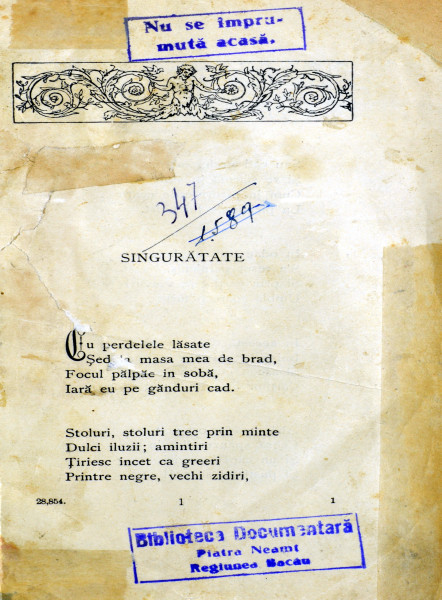 Nu se împru-
mută acasă.
347
1.589
SINGURĂTATE
Cu perdelele lăsate
Șed la masa mea de brad,
Focul pâlpăe in sobă,
Iară eu pe gânduri cad.
Stoluri, stoluri trec prin minte
Dulci iluzii; amintiri
Țiriesc incet ca greeri
Printre negre, vechi zidiri,
28,854. 1 1
Biblioteca Documentară
Piatra Neamț
Regiunea Bacău